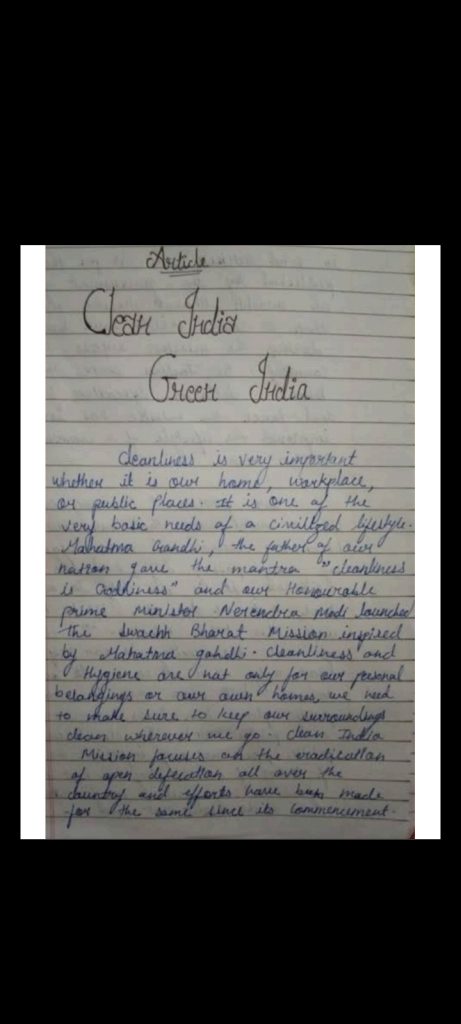 Article
Clean India
Green India
Cleanliness is very important
whether it is our home, workplace,
or public places. It is one of the
very basic needs of a civilized lifestyle.
Mahatma Gandhi, the father of our
nation gave the mantra "cleanliness
is Godliness" and our Honourable
prime minister Nerendra Modi launched
the Swachh Bharat Mission inspired
by Mahatma gahdhi. Cleanliness and
Hygiene are not only for our personal
belongings or our own homes, we need
to make sure to keep our surroundings
clean wherever we go. Clean India
Mission focuses on the eradication
of open defecation all over the
country and efforts have been made
for the same since its commencement.